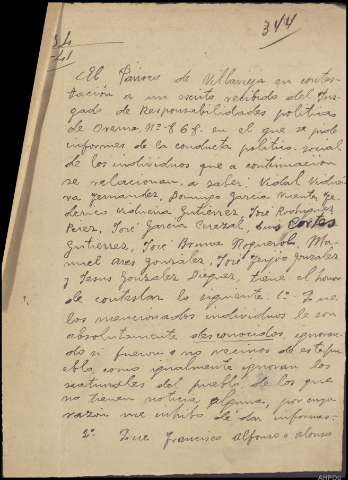 344
El Párroco de Villavieja en contes-
tación a un escrito recibido del Juz-
gado de Responsabilidades políticas
de Orense, Nº 868, en el que se pide
informes de la conducta política-social
de los individuos que a continuación
se relacionan, a saber: Vidal
Fernandez, Domingo García Vicente, Fe-
derico Gutiérrez, José Rodriguez
Pérez, José García Luis Cortés
Gutiérrez, José Bruna Ma-
nuel Ares González, José González
y Jesus Gonzalez Dieguez, tiene el honor
de contestar lo siguiente: 1º Que
los mencionados individuos le son
absolutamente desconocidos, ignoran-
do si fueron o no vecinos de este pue-
blo, como igualmente ignoran los
naturales del pueblo de los que
no tienen noticia alguna, por cuya
razón me inhibo de dar informes.
2º Que Francisco Alfonso o Alonso
AHPOU